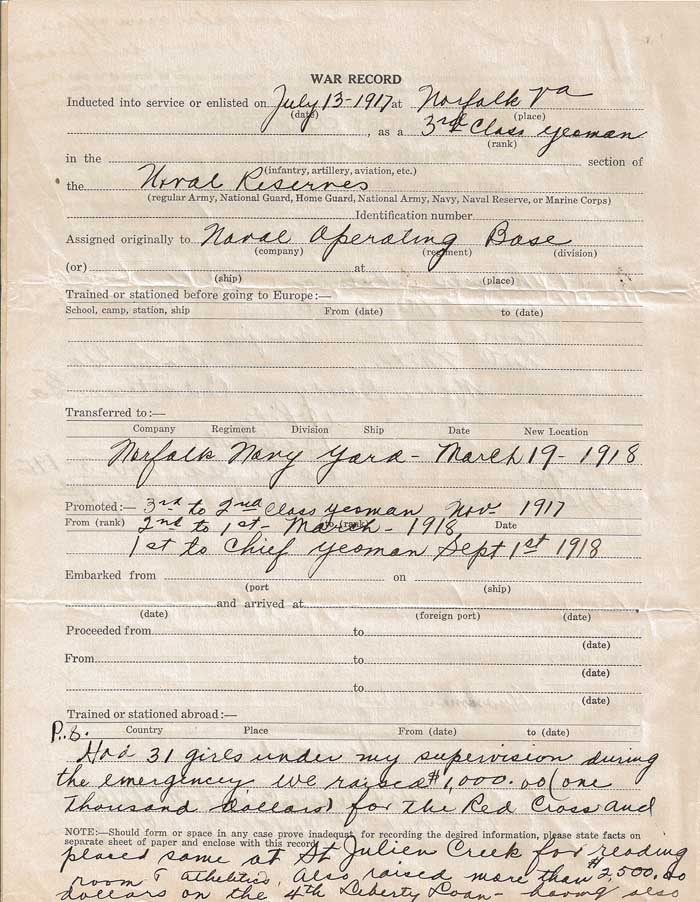 WAR RECORD
Inducted into service or enlisted on July 13-1917 at Norfolk Va
(date) (place)
, as a 3rd Class Yeoman
(rank)
in the section of
(infantry, artillery, aviation, etc.)
the Naval Reserves
(regular Army, National Guard, Home Guard, National Army, Navy, Naval Reserve, or Marine Corps)
Identification number
Assigned originally to Naval Operating Base
(company) (regiment) (division)
(or) at
(ship) (place)
Trained or stationed before going to Europe:—
School, camp, station, ship From (date) to (date)
Transferred to:—
Company Regiment Division Ship Date New Location
Norfolk Navy Yard - March 19 - 1918
Promoted:— 3rd to 2nd Class Yeoman Nov. 1917
From (rank) to (rank) Date
2nd to 1st - March - 1918
1st to Chief Yeoman Sept 1st 1918
Embarked from on
(port (ship)
and arrived at
(date) (foreign port) (date)
Proceeded from to
(date)
From to
(date)
to
(date)
Trained or stationed abroad:—
Country Place From (date) to (date)
P.S.
Had 31 girls under my supervision during
the emergency we raised $1,000.00 (one
thousand dollars) for the Red Cross and
NOTE:—Should form or space in any case prove inadequate for recording the desired information, please state facts on
separate sheet of paper and enclose with this record
placed same at St Julien Creek for reading
room & athletics, Also raised more than $2,500.00
dollars on the 4th Liberty Loan - having also